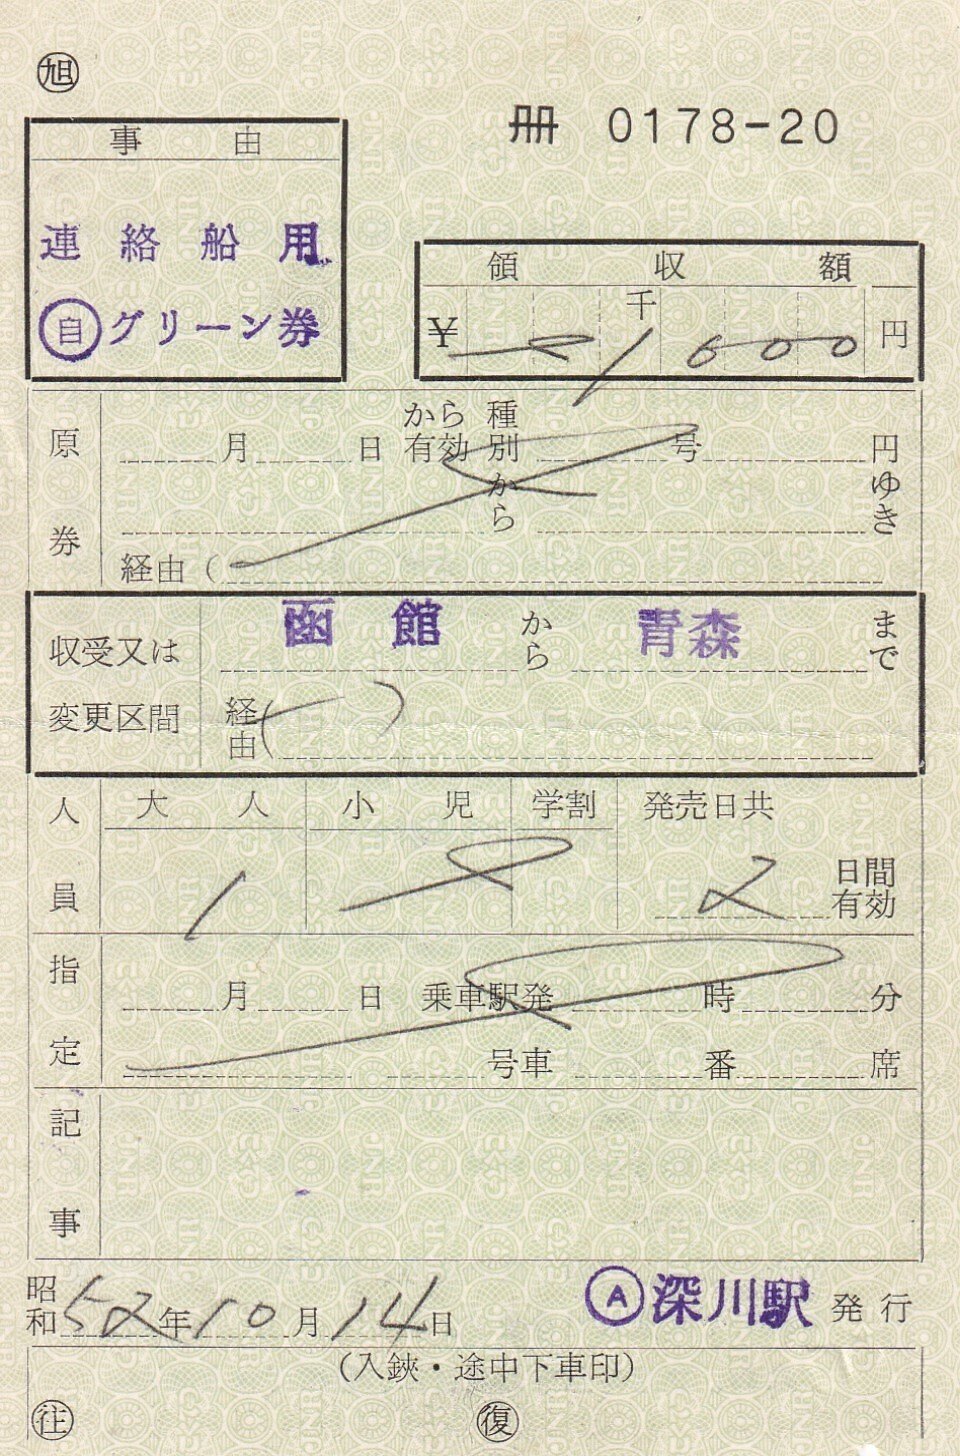 ㊐旭
冊 0178-20
事由
連絡船用
自 グリーン券
領収額
千
¥ 1600 円
原券
月 日 から有効 種別 号 円
から ゆき
経由(
収受又は変更区間
函館 から 青森 まで
経由( )
人員
大人 小児 学割 発売日共
1 2 日間有効
指定
月 日 乗車駅発 時 分
号車 番 席
記事
昭和 52年10月14日 Ⓐ深川駅 発行
(入鋏・途中下車印)
往 復